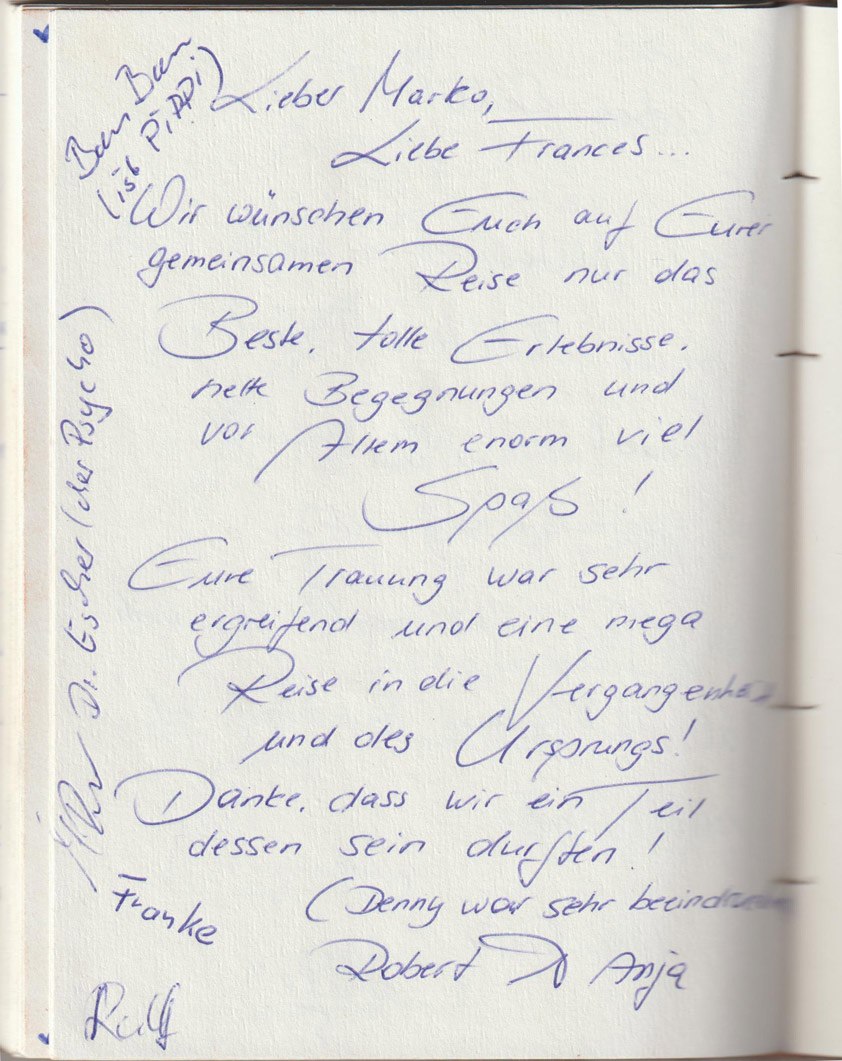 Bam Bam
(ist PiPPi)
Lieber Marko,
Liebe Frances...
Wir wünschen Euch auf Eurer
gemeinsamen Reise nur das
Beste, tolle Erlebnisse,
nette Begegnungen und
vor Allem enorm viel
Spaß!
Eure Trauung war sehr
ergreifend und eine mega
Reise in die Vergangenheit
und des Ursprungs!
Danke, dass wir ein Teil
dessen sein durften!
(Denny war sehr beeindruckt
Robert Anja
Dr. Escher (der Psycho)
Franke
Rolf